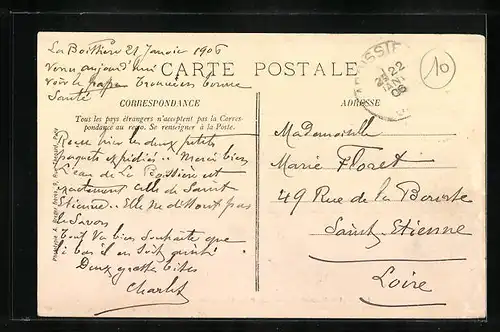 La Boissière 21 Janvier 1906
Venus aujourd'hui
voir le papa Trouvères bonne
Santé
CARTE POSTALE
CORRESPONDANCE
Tous les pays étrangers n'acceptent pas la Corres-
pondance au recto. Se renseigner à la Poste.
Reçue hier les deux petits
paquets expédiés.. Merci bien
L'eau de La Boissière est
exactement celle de Saint
Etienne.. Elle ne dissout pas
le Savon
Tout Va bien souhaite que
là bas il en soit ainsi
Deux grosses bises
Charlot
ADRESSE
22
JANV
06
10
Mademoiselle
Marie Floret
49 Rue de la
Saint-Etienne
Loire